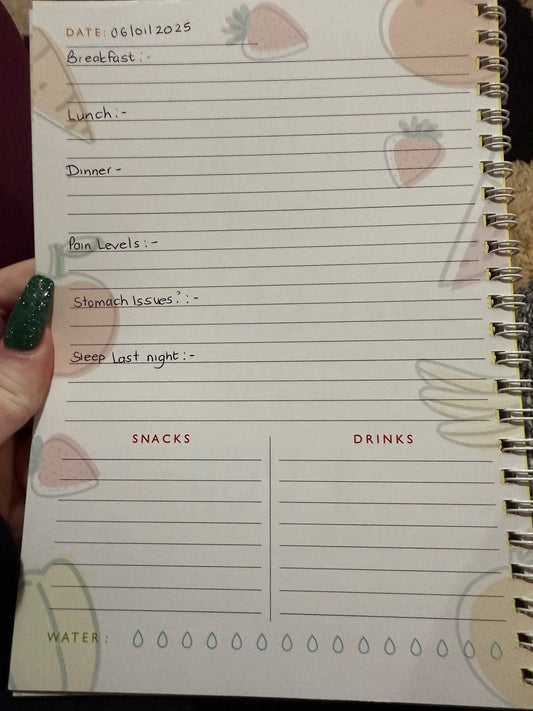 DATE: 06/01/2025
Breakfast:-
Lunch:-
Dinner-
Pain Levels:-
Stomach Issues?:-
Sleep Last night:-
SNACKS
DRINKS
WATER: